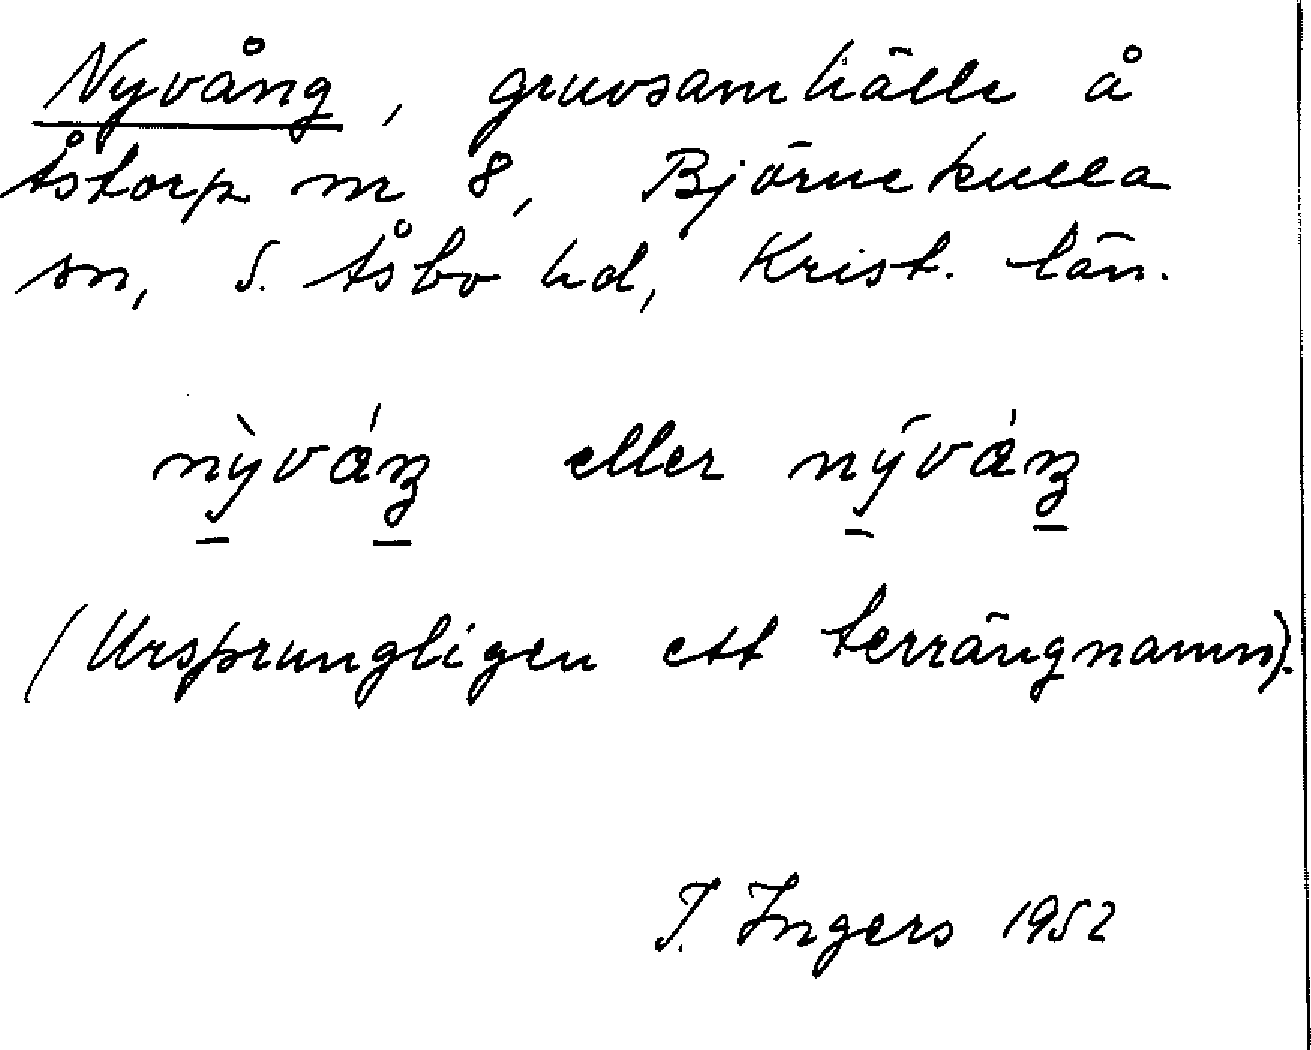 Nyvång, gruvsamhälle å
Åstorp nr 8, Björnekulla
sn, S. Åsbo hd, Krist. län.
nỳváŋ eller nýváŋ
(Ursprungligen ett terrängnamn).
I. Ingers 1952